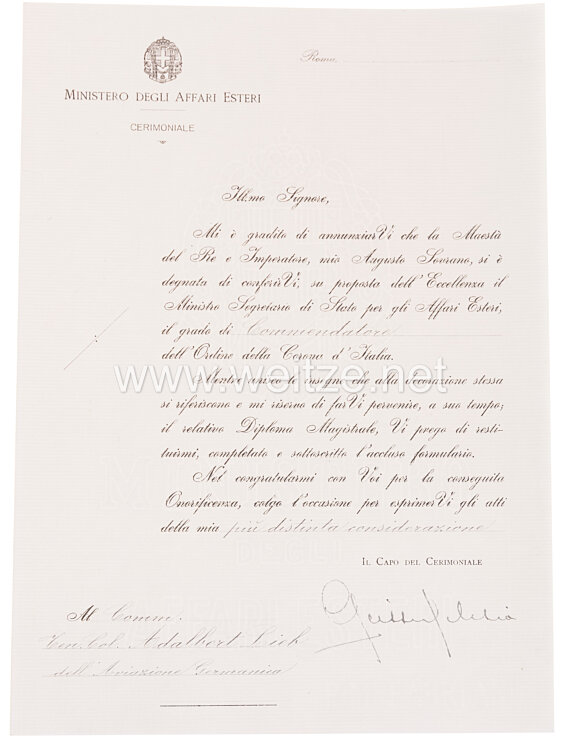 Roma,
MINISTERO DEGLI AFFARI ESTERI
CERIMONIALE
Ill.mo Signore,
Mi è gradito di annunziarVi che la Maestà
del Re e Imperatore, mio Augusto Sovrano, si è
degnata di conferirVi, su proposta dell'Eccellenza il
Ministro Segretario di Stato per gli Affari Esteri,
il grado di Commendatore
dell'Ordine della Corona d'Italia.
www.weitze.net
Mentre unisco le insegne che alla decorazione stessa
si riferiscono e mi riservo di farVi pervenire, a suo tempo;
il relativo Diploma Magistrale, Vi prego di resti-
tuirmi, completato e sottoscritto l'accluso formulario.
Nel congratularmi con Voi per la conseguita
Onorificenza, colgo l'occasione per esprimerVi gli atti
della mia più distinta considerazione
IL CAPO DEL CERIMONIALE
Al Comm.
Ten. Col. Adalbert
dell'Aviazione Germanica